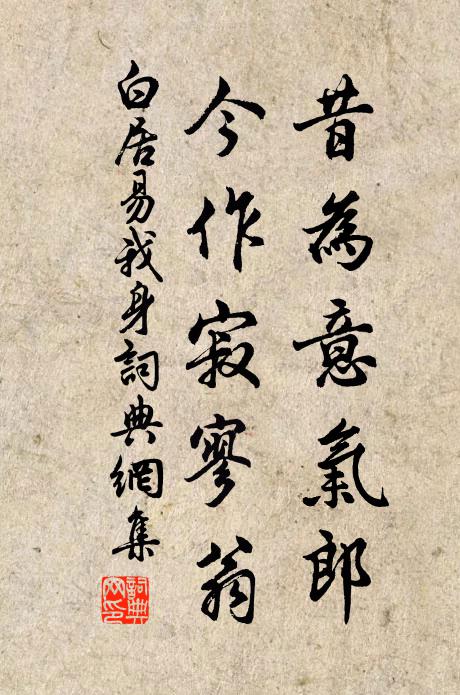 昔為意氣郎
今作寂寥翁
白居易我身詞典網集
詞典
网印